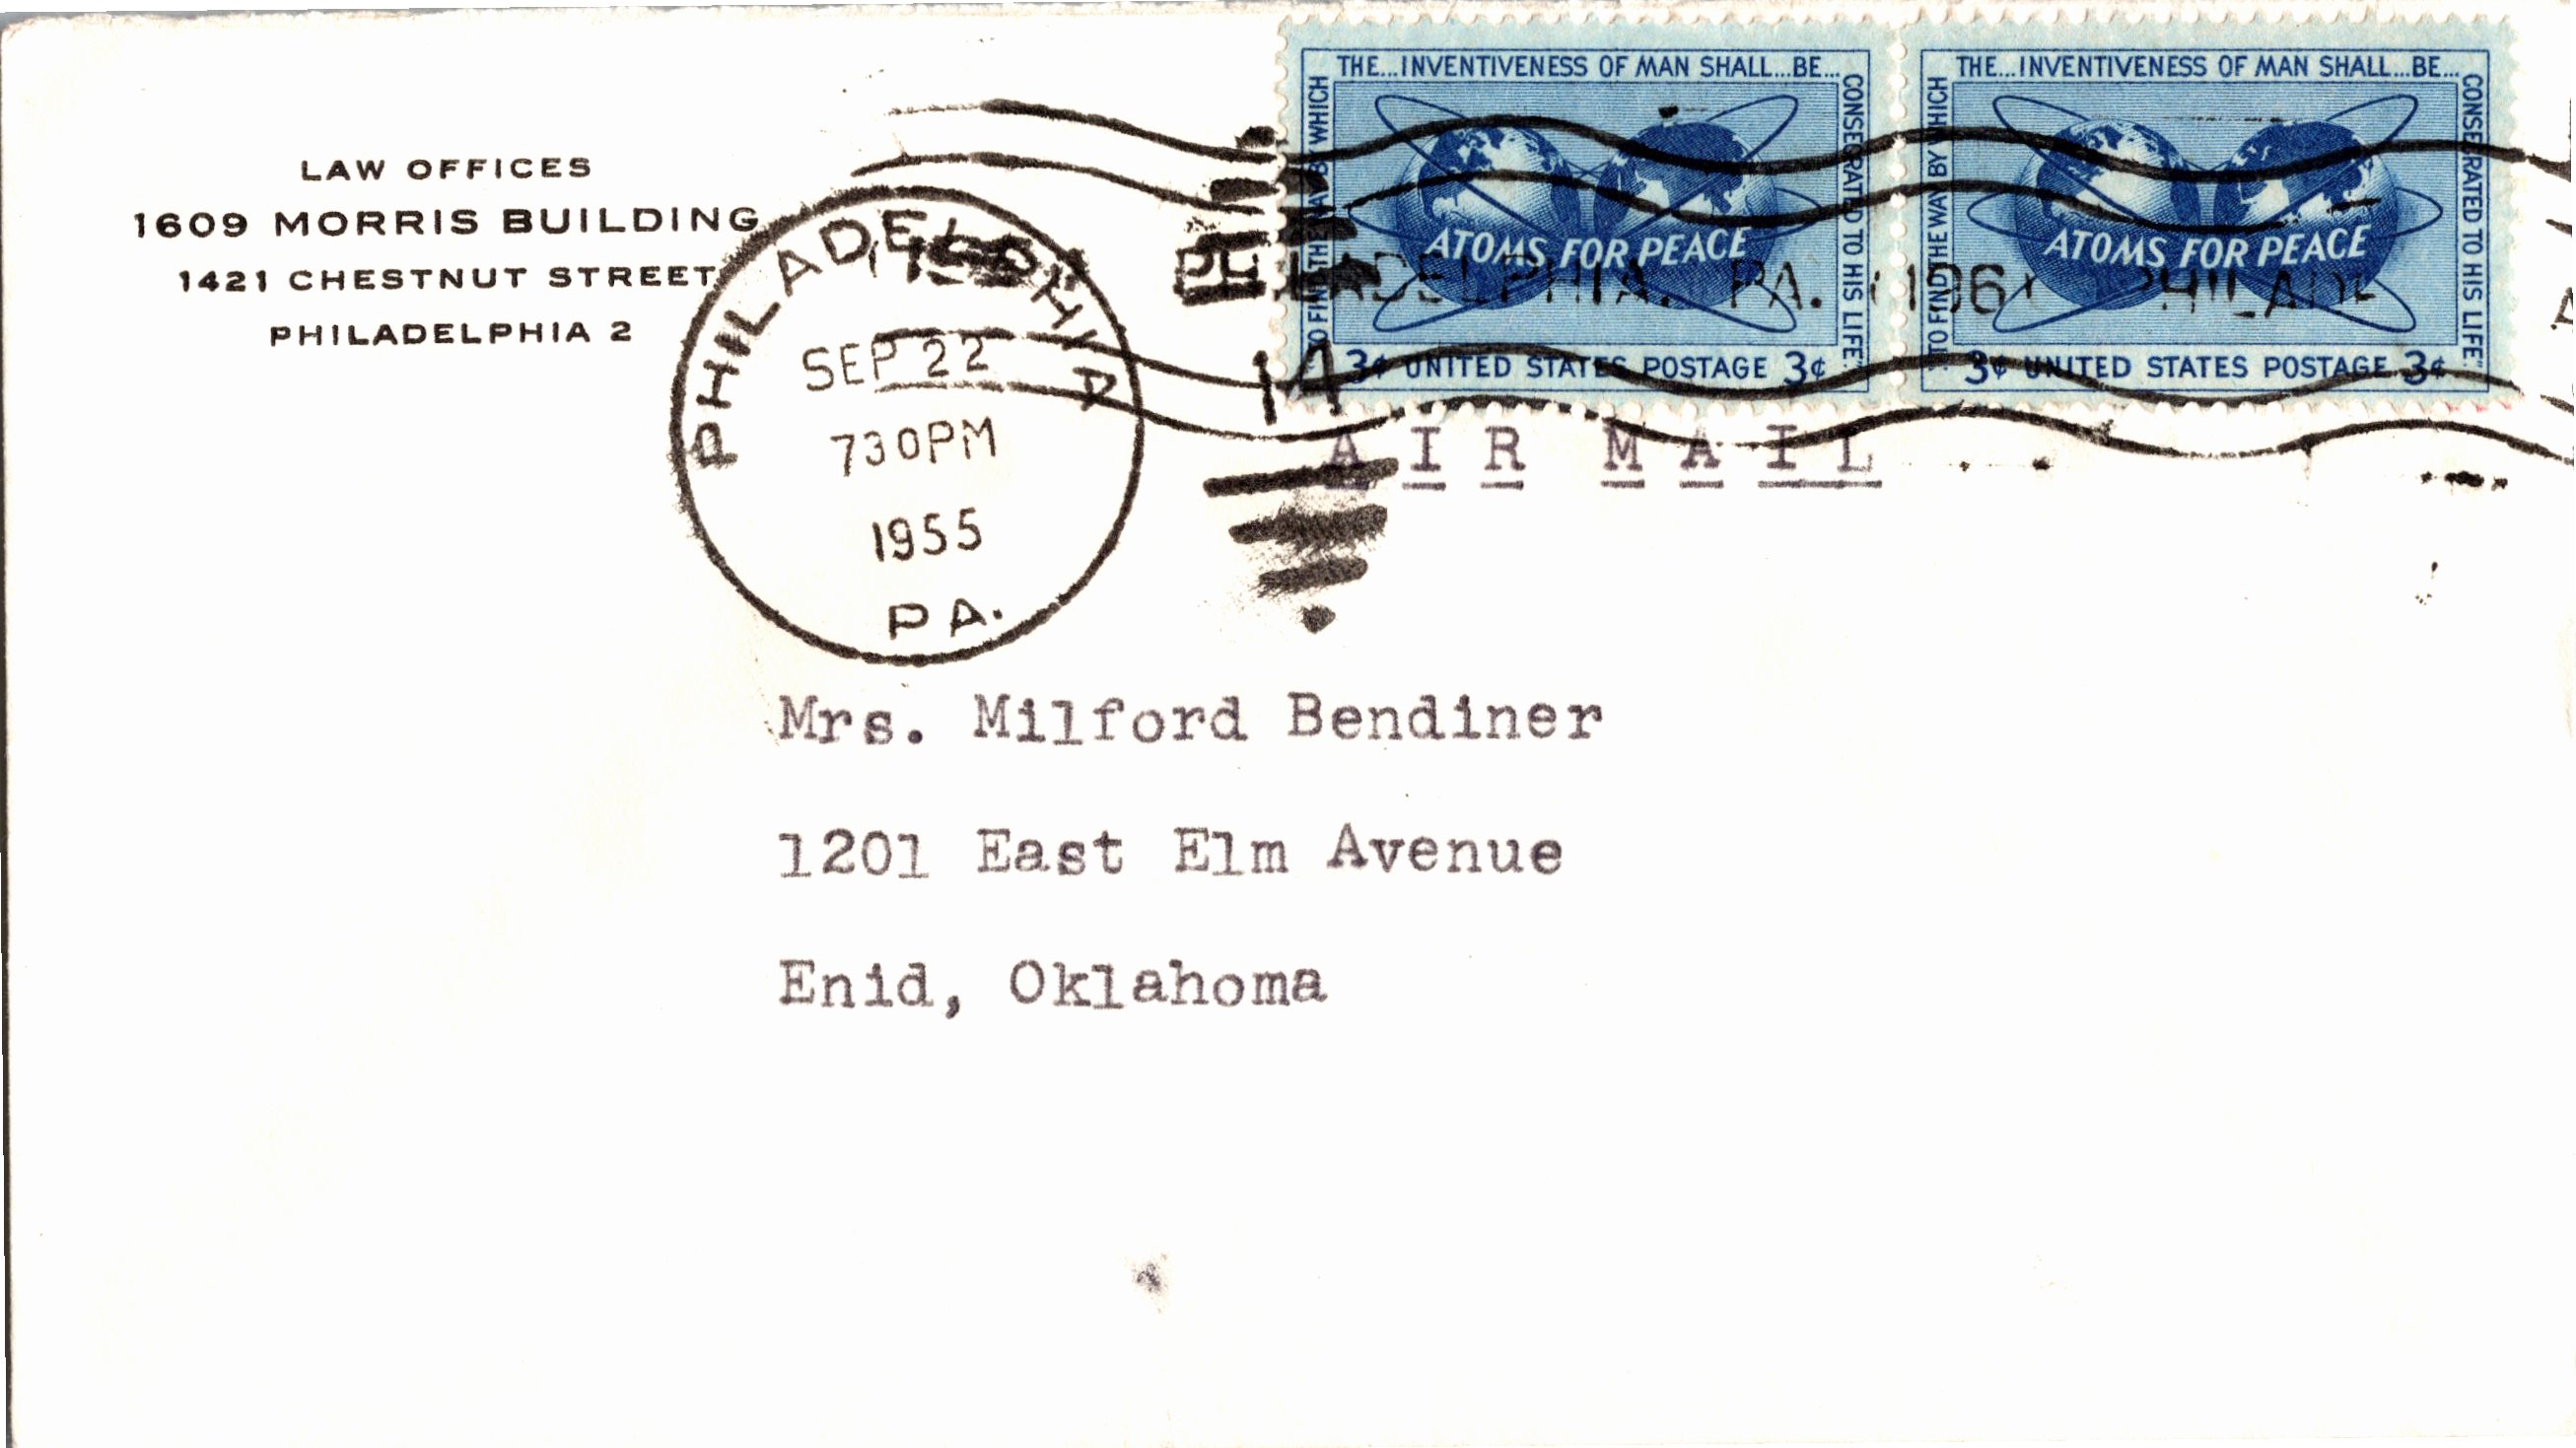 LAW OFFICES
1609 MORRIS BUILDING
1421 CHESTNUT STREET
PHILADELPHIA 2
PHILADELPHIA
SEP 22
730PM
1955
PA.
THE...INVENTIVENESS OF MAN SHALL...BE...
CONSECRATED TO HIS LIFE."
"TO FIND THE WAY BY WHICH
ATOMS FOR PEACE
3¢ UNITED STATES POSTAGE 3¢
THE...INVENTIVENESS OF MAN SHALL...BE...
CONSECRATED TO HIS LIFE."
"TO FIND THE WAY BY WHICH
ATOMS FOR PEACE
3¢ UNITED STATES POSTAGE 3¢
PHILADELPHIA, PA.
14
AIR MAIL
Mrs. Milford Bendiner
1201 East Elm Avenue
Enid, Oklahoma